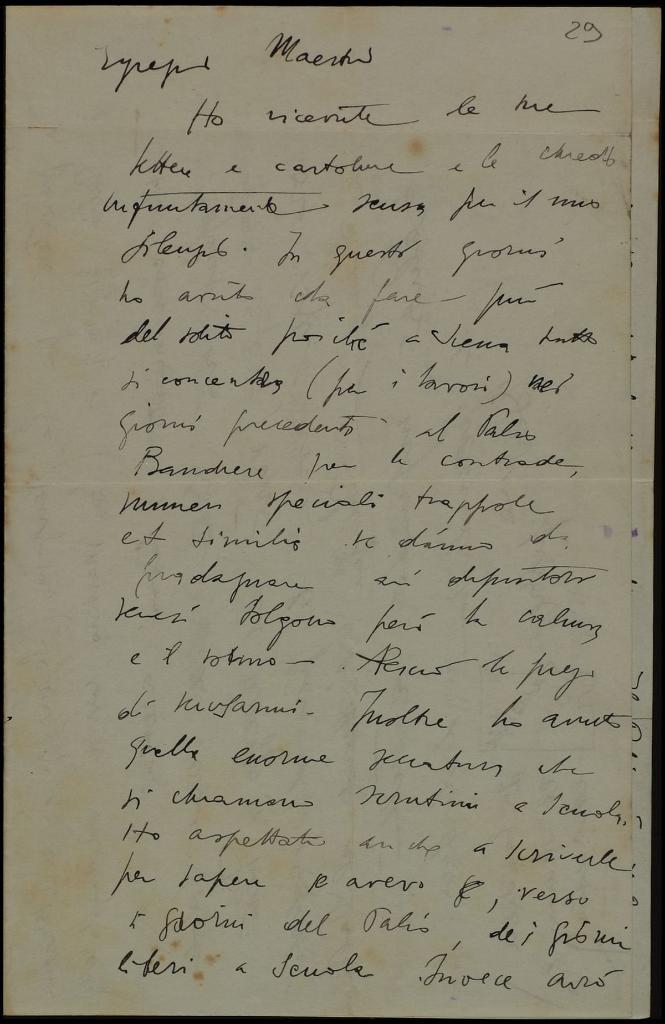 29
Egregio Maestro
Ho ricevute le sue
lettere e cartoline e le chiedo
infinitamente scusa per il mio
silenzio. In questi giorni
ho avuto da fare più
del solito poiché a Siena tutto
si concentra (per i lavori) nei
giorni precedenti al Palio
Bandiere per le contrade,
numeri speciali trappole
et similia se danno da
guadagnare ai
senesi tolgono però la calma
e il sonno — Perciò la prego
di scusarmi. Inoltre ho avuto
quella enorme seccatura che
si chiamano scrutinii a Scuola.
Ho aspettato anche a scriverle
per sapere se avevo, verso
i giorni del Palio, dei giorni
liberi a Scuola. Invece avrò